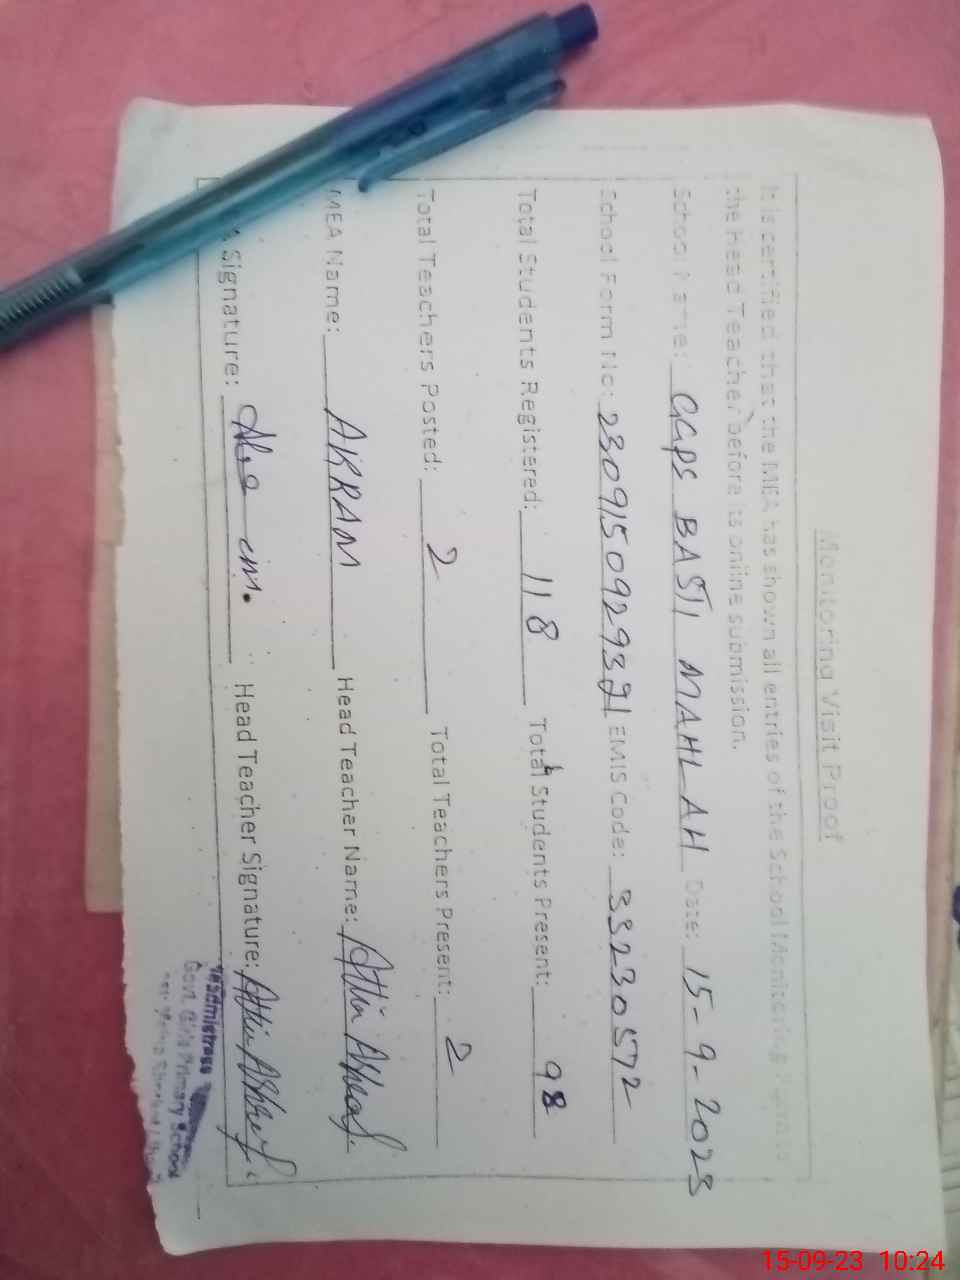 Monitoring Visit Proof
It is certified that the MEA has shown all entries of the School Monitoring to
the Head Teacher before its online submission.
School Name: GGPS BASTI MAHLAH Date: 15-9-2023
School Form No: EMIS Code: 33230572
Total Students Registered: 118 Total Students Present: 98
Total Teachers Posted: 2 Total Teachers Present: 2
MEA Name: AKRAM Head Teacher Name:
Signature: Head Teacher Signature:
Headmistress
Govt. Girls Primary School
15-09-23 10:24